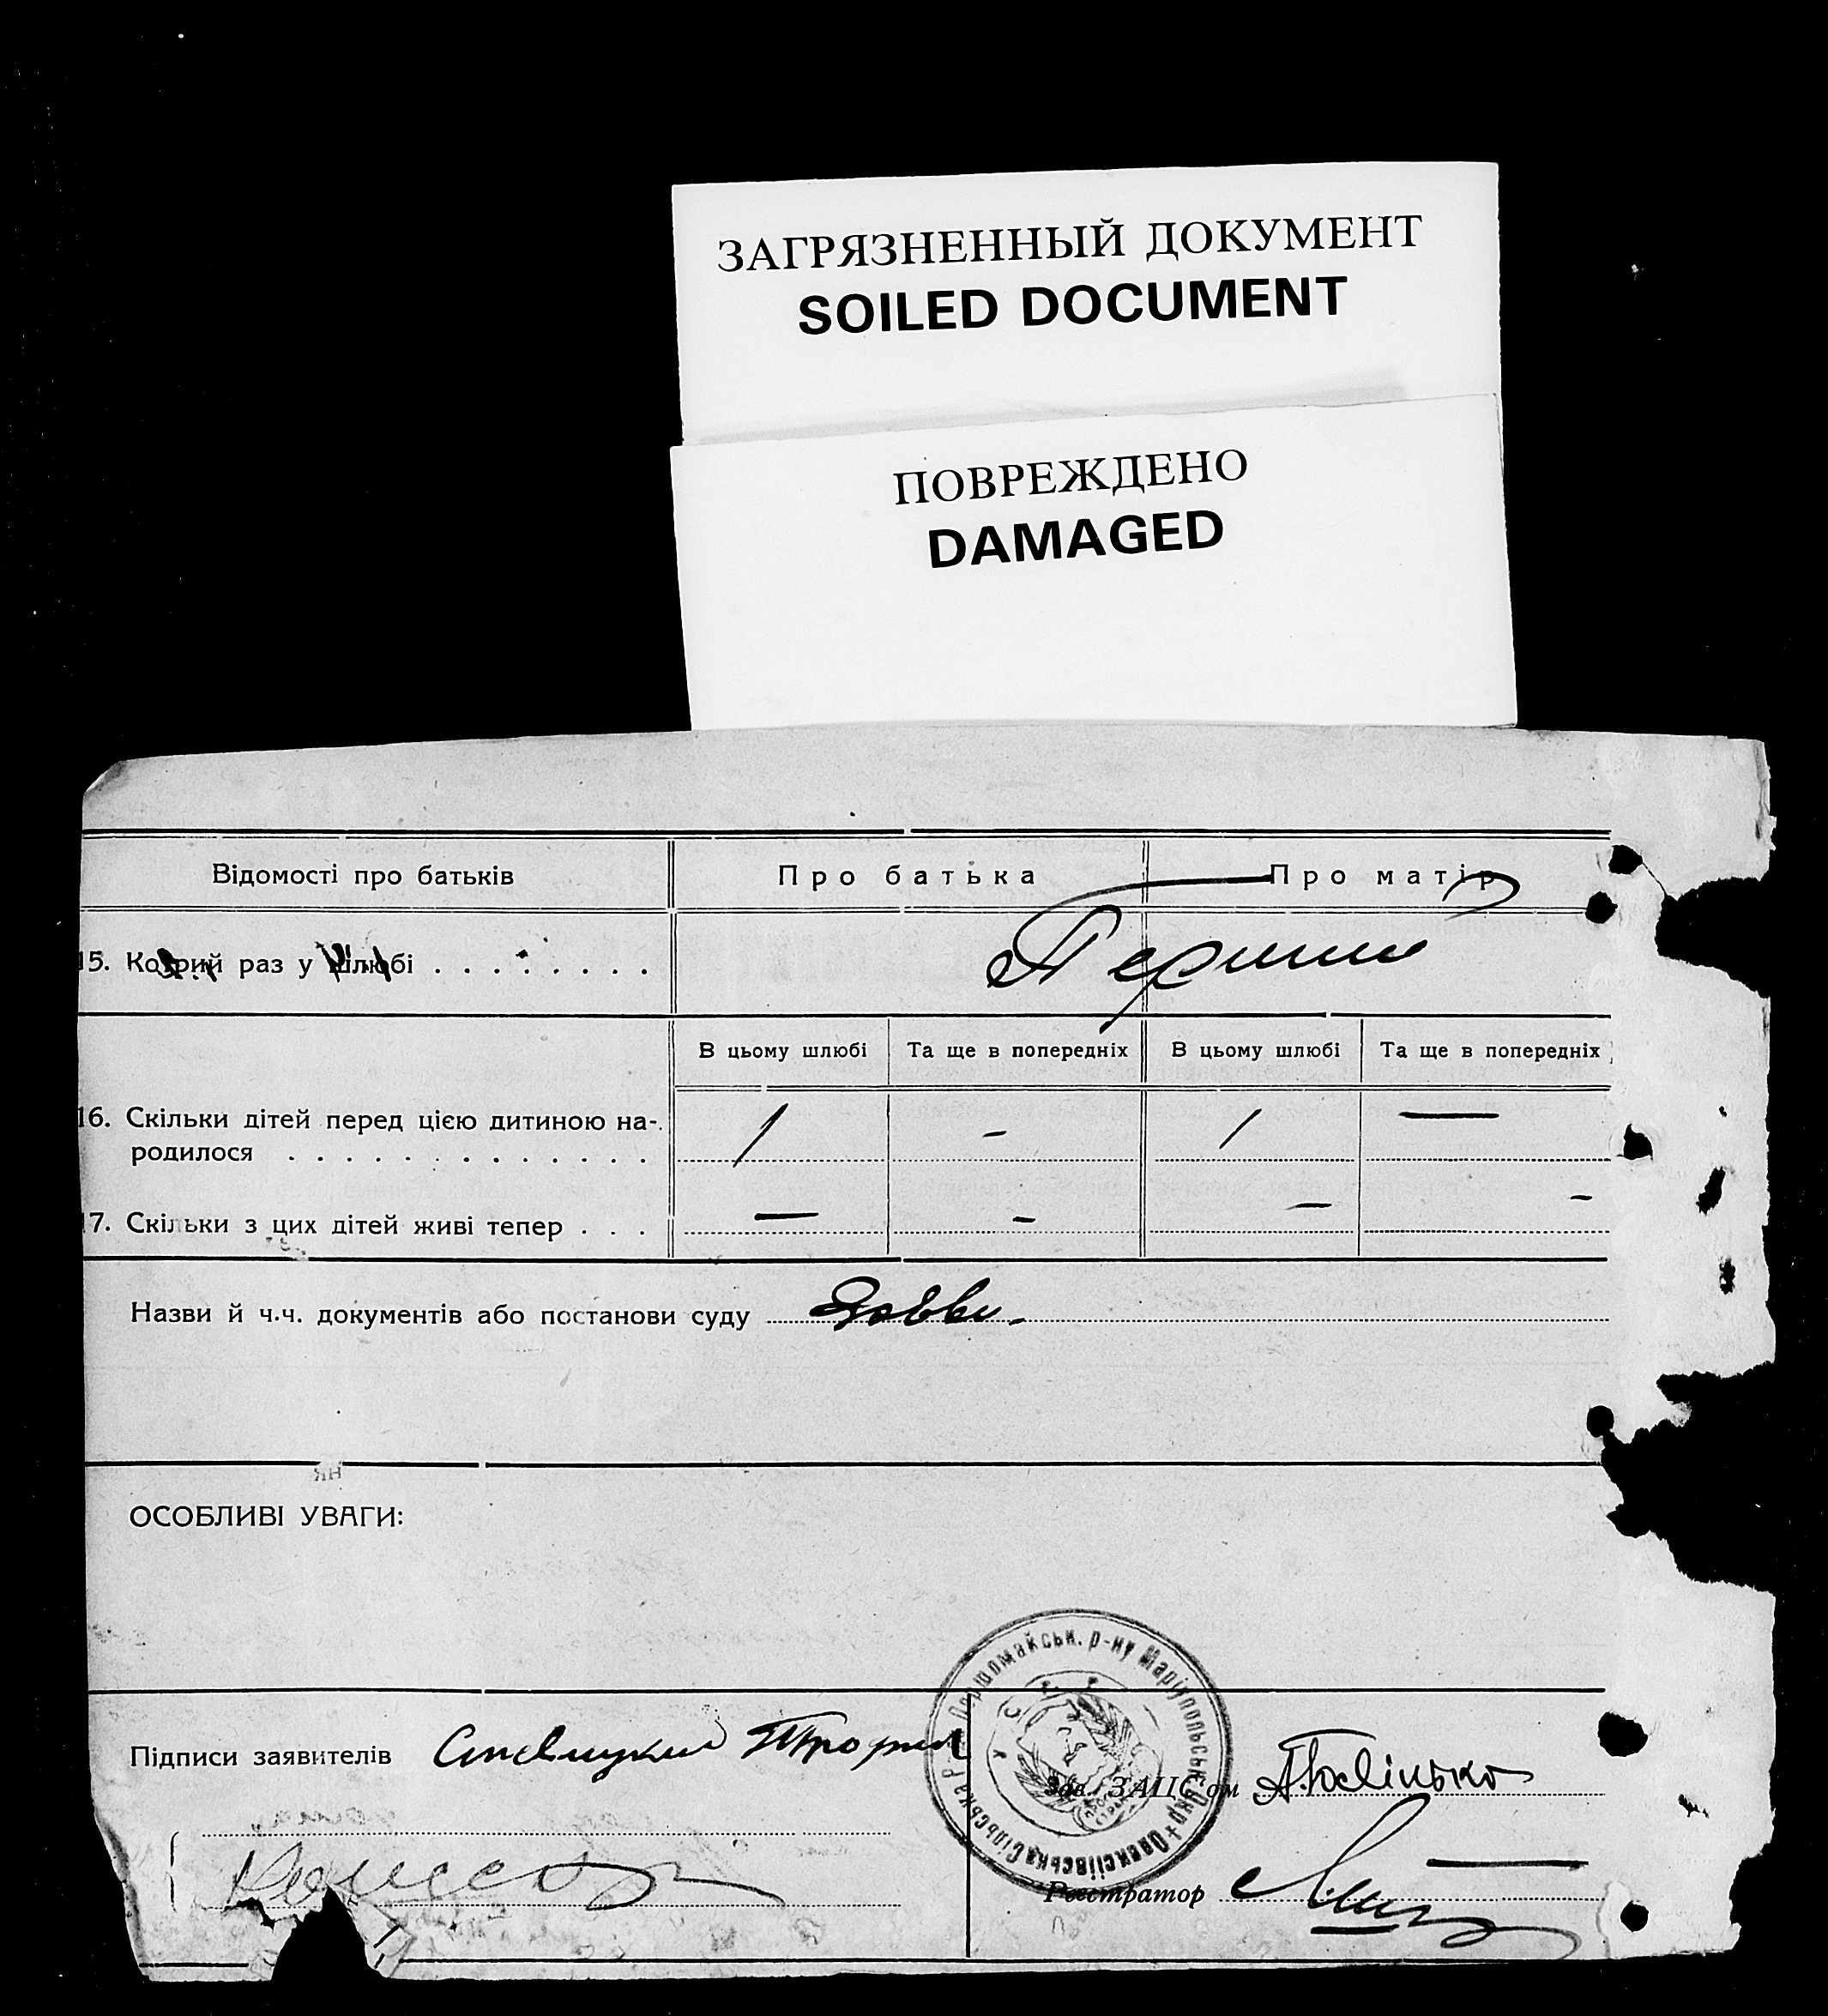 ЗАГРЯЗНЕННЫЙ ДОКУМЕНТ
SOILED DOCUMENT
ПОВРЕЖДЕНО
DAMAGED
Відомості про батьків Про батька Про матір
15. Котрий раз у шлюбі . . . . . . . .
В цьому шлюбі Та ще в попередніх В цьому шлюбі Та ще в попередніх
16. Скільки дітей перед цією дитиною на-
родилося . . . . . . . . . . . . . 1 - 1 —
17. Скільки з цих дітей живі тепер . . . — - — -
Назви й ч.ч. документів або постанови суду
ОСОБЛИВІ УВАГИ:
Першомайськ. р-ну Маріупольськ. Окр + Олексіївська Сільська
Підписи заявителів
Зав. ЗАЦС'ом
Реєстратор